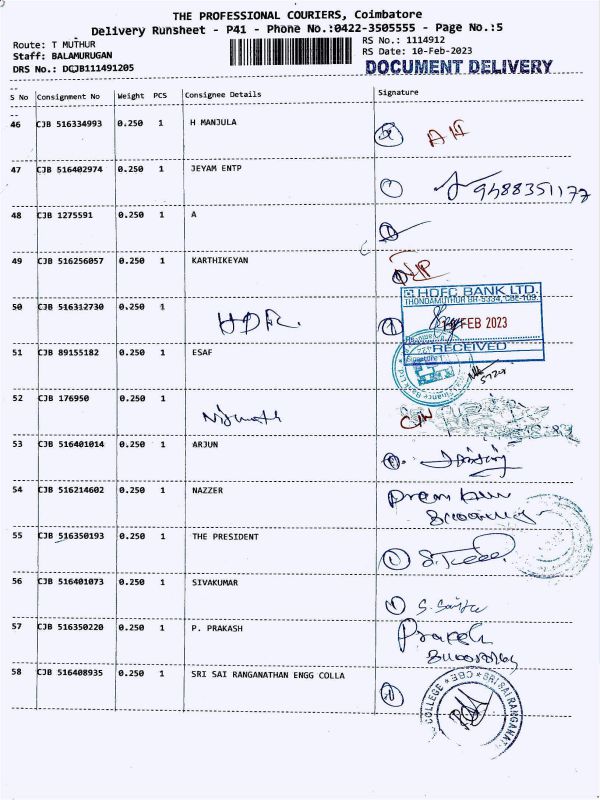 THE PROFESSIONAL COURIERS, Coimbatore
Delivery Runsheet - P41 - Phone No.:0422-3505555 - Page No.:5
Route: T MUTHUR
RS No.: 1114912
Staff: BALAMURUGAN
RS Date: 10-Feb-2023
DRS No.: DCJB111491205
DOCUMENT DELIVERY
S No Consignment No Weight PCS Consignee Details Signature
46 CJB 516334993 0.250 1 H MANJULA
47 CJB 516402974 0.250 1 JEYAM ENTP 9488351177
48 CJB 1275591 0.250 1 A
49 CJB 516256057 0.250 1 KARTHIKEYAN
HDFC BANK LTD.
THONDAMUTHUR BR-5334, CBE-109.
50 CJB 516312730 0.250 1
FEB 2023
RECEIVED
Signature
51 CJB 89155182 0.250 1 ESAF
52 CJB 176950 0.250 1
53 CJB 516401014 0.250 1 ARJUN
54 CJB 516214602 0.250 1 NAZZER
55 CJB 516350193 0.250 1 THE PRESIDENT
56 CJB 516401073 0.250 1 SIVAKUMAR
57 CJB 516350220 0.250 1 P. PRAKASH
58 CJB 516408935 0.250 1 SRI SAI RANGANATHAN ENGG COLLA
COLLEGE * CBE * SRI SAI RANGANAT